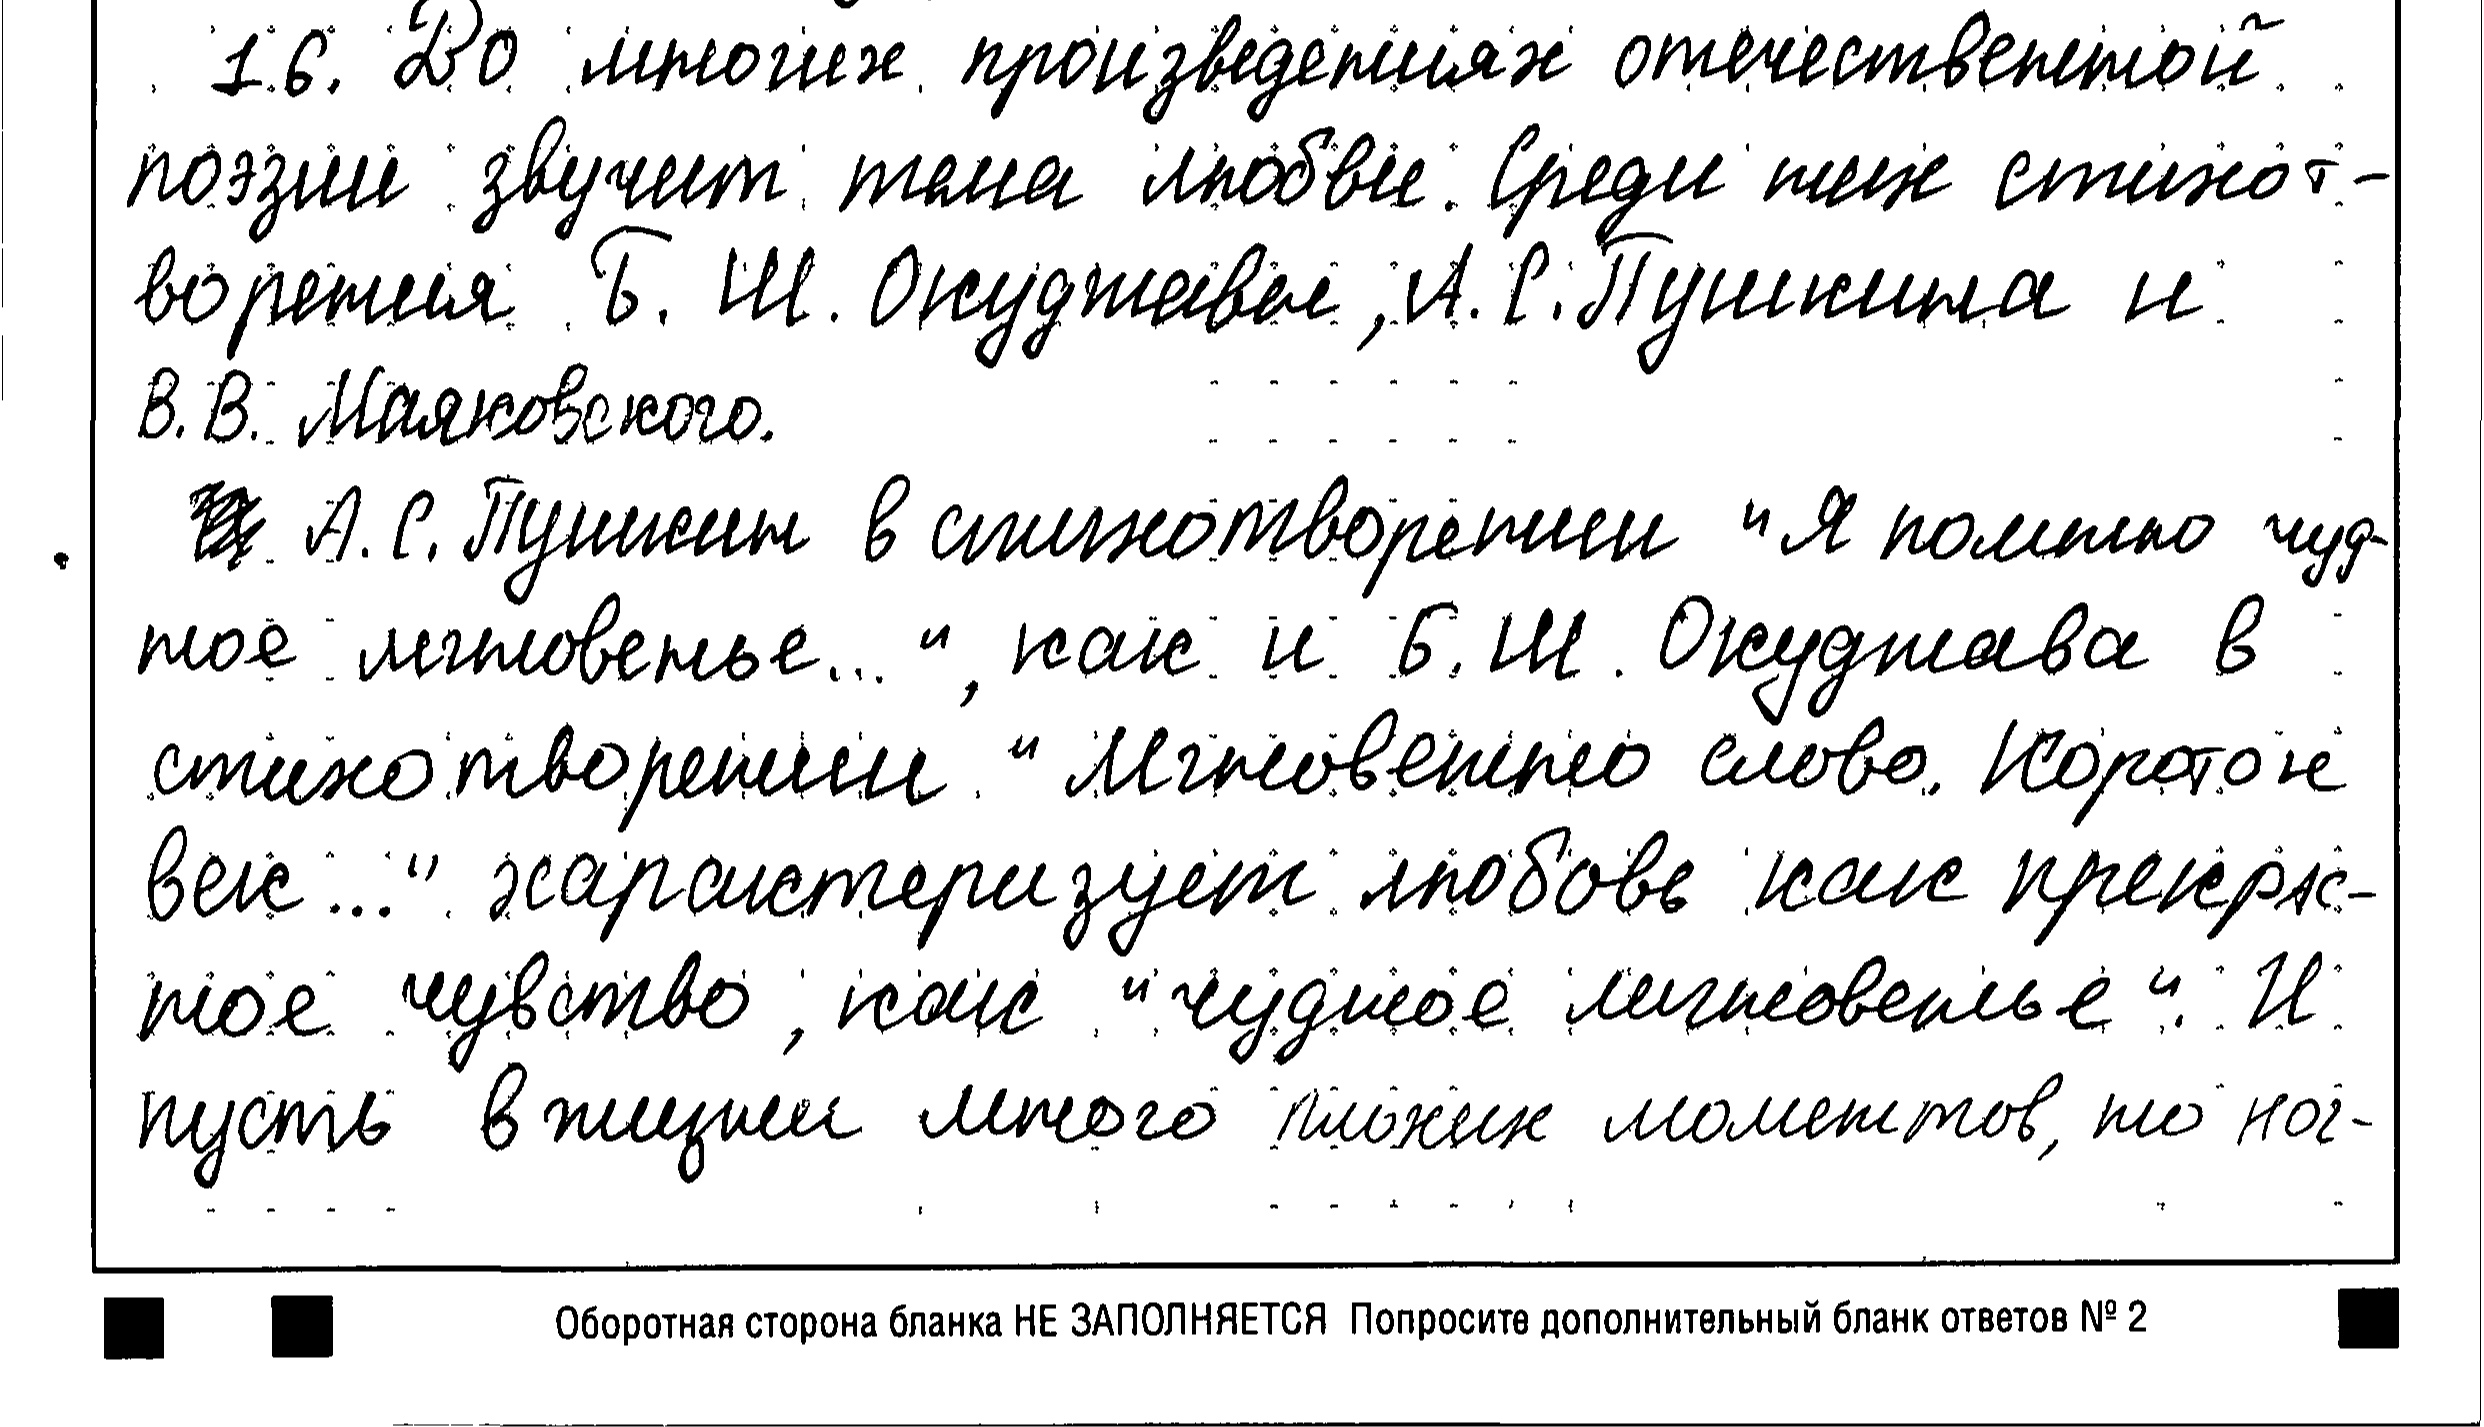 16. Во многих произведениях отечественной
поэзии звучит тема любви. Среди них стихот-
ворения Б. Ш. Окуджавы, А. С. Пушкина и
В. В. Маяковского.
А. С. Пушкин в стихотворении "Я помню чуд-
ное мгновенье...", как и Б. Ш. Окуджава в
стихотворении "Мгновенно слово. Короток
век..." характеризует любовь как прекрас-
ное чувство, как "чудное мгновенье". И
пусть в жизни много плохих моментов, но ког-
Оборотная сторона бланка НЕ ЗАПОЛНЯЕТСЯ Попросите дополнительный бланк ответов № 2